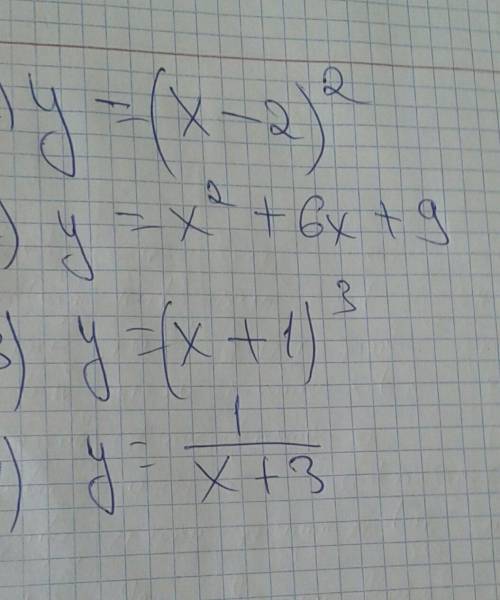 ) y = (x - 2)²
) y = x² + 6x + 9
3) y = (x + 1)³
) y = 1/(x + 3)